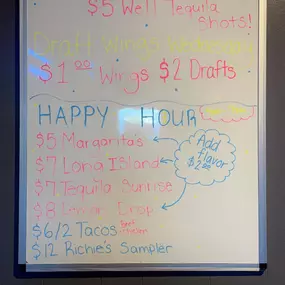 $5 Well Tequila
Shots!
Draft Wings Wednesday
$1.00 Wings $2 Drafts
HAPPY HOUR
$5 Margarita's
$7 Long Island
$7 Tequila Sunrise
$8 Lemon Drop
Add
flavor
$2.00
$6/2 Tacos
$12 Richie's Sampler